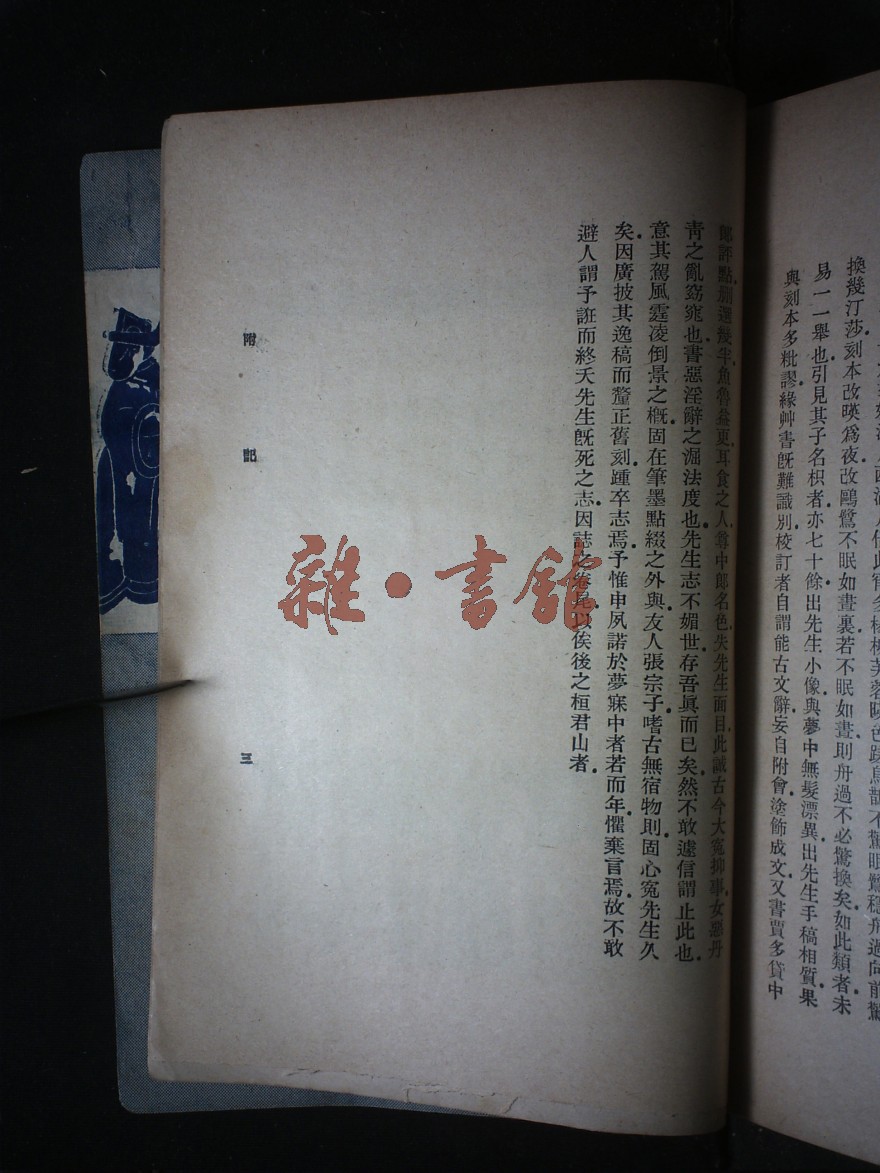 換幾汀莎刻本改暎爲夜改鷗鷺不眠如晝裏若不眠如晝則舟過不必驚換矣如此類者未
易一一舉也引見其子名枳者亦七十餘出先生小像與夢中無髮漂異出先生手稿相質果
與刻本多粃謬緣艸書旣難識別校訂者自謂能古文辭妄自附會塗飾成文又書賈多貸中
郎評點別選幾半魚魯益更耳食之人尊中郎名色失先生面目此誠古今大冤抑事女惡丹
靑之亂窈窕也書惡淫辭之淈法度也先生志不媚世存吾眞而已矣然不敢遽信謂止此也
意其駕風霆凌倒景之槪固在筆墨點綴之外與友人張宗子嗜古無宿物則固心冤先生久
矣因廣披其逸稿而釐正舊刻踵卒志焉予惟申夙諾於夢寐中者若而年懼棄言焉故不敢
避人謂予誑而終夭先生旣死之志因誌之卷尾以俟後之桓君山者
附記
三
雜·書館